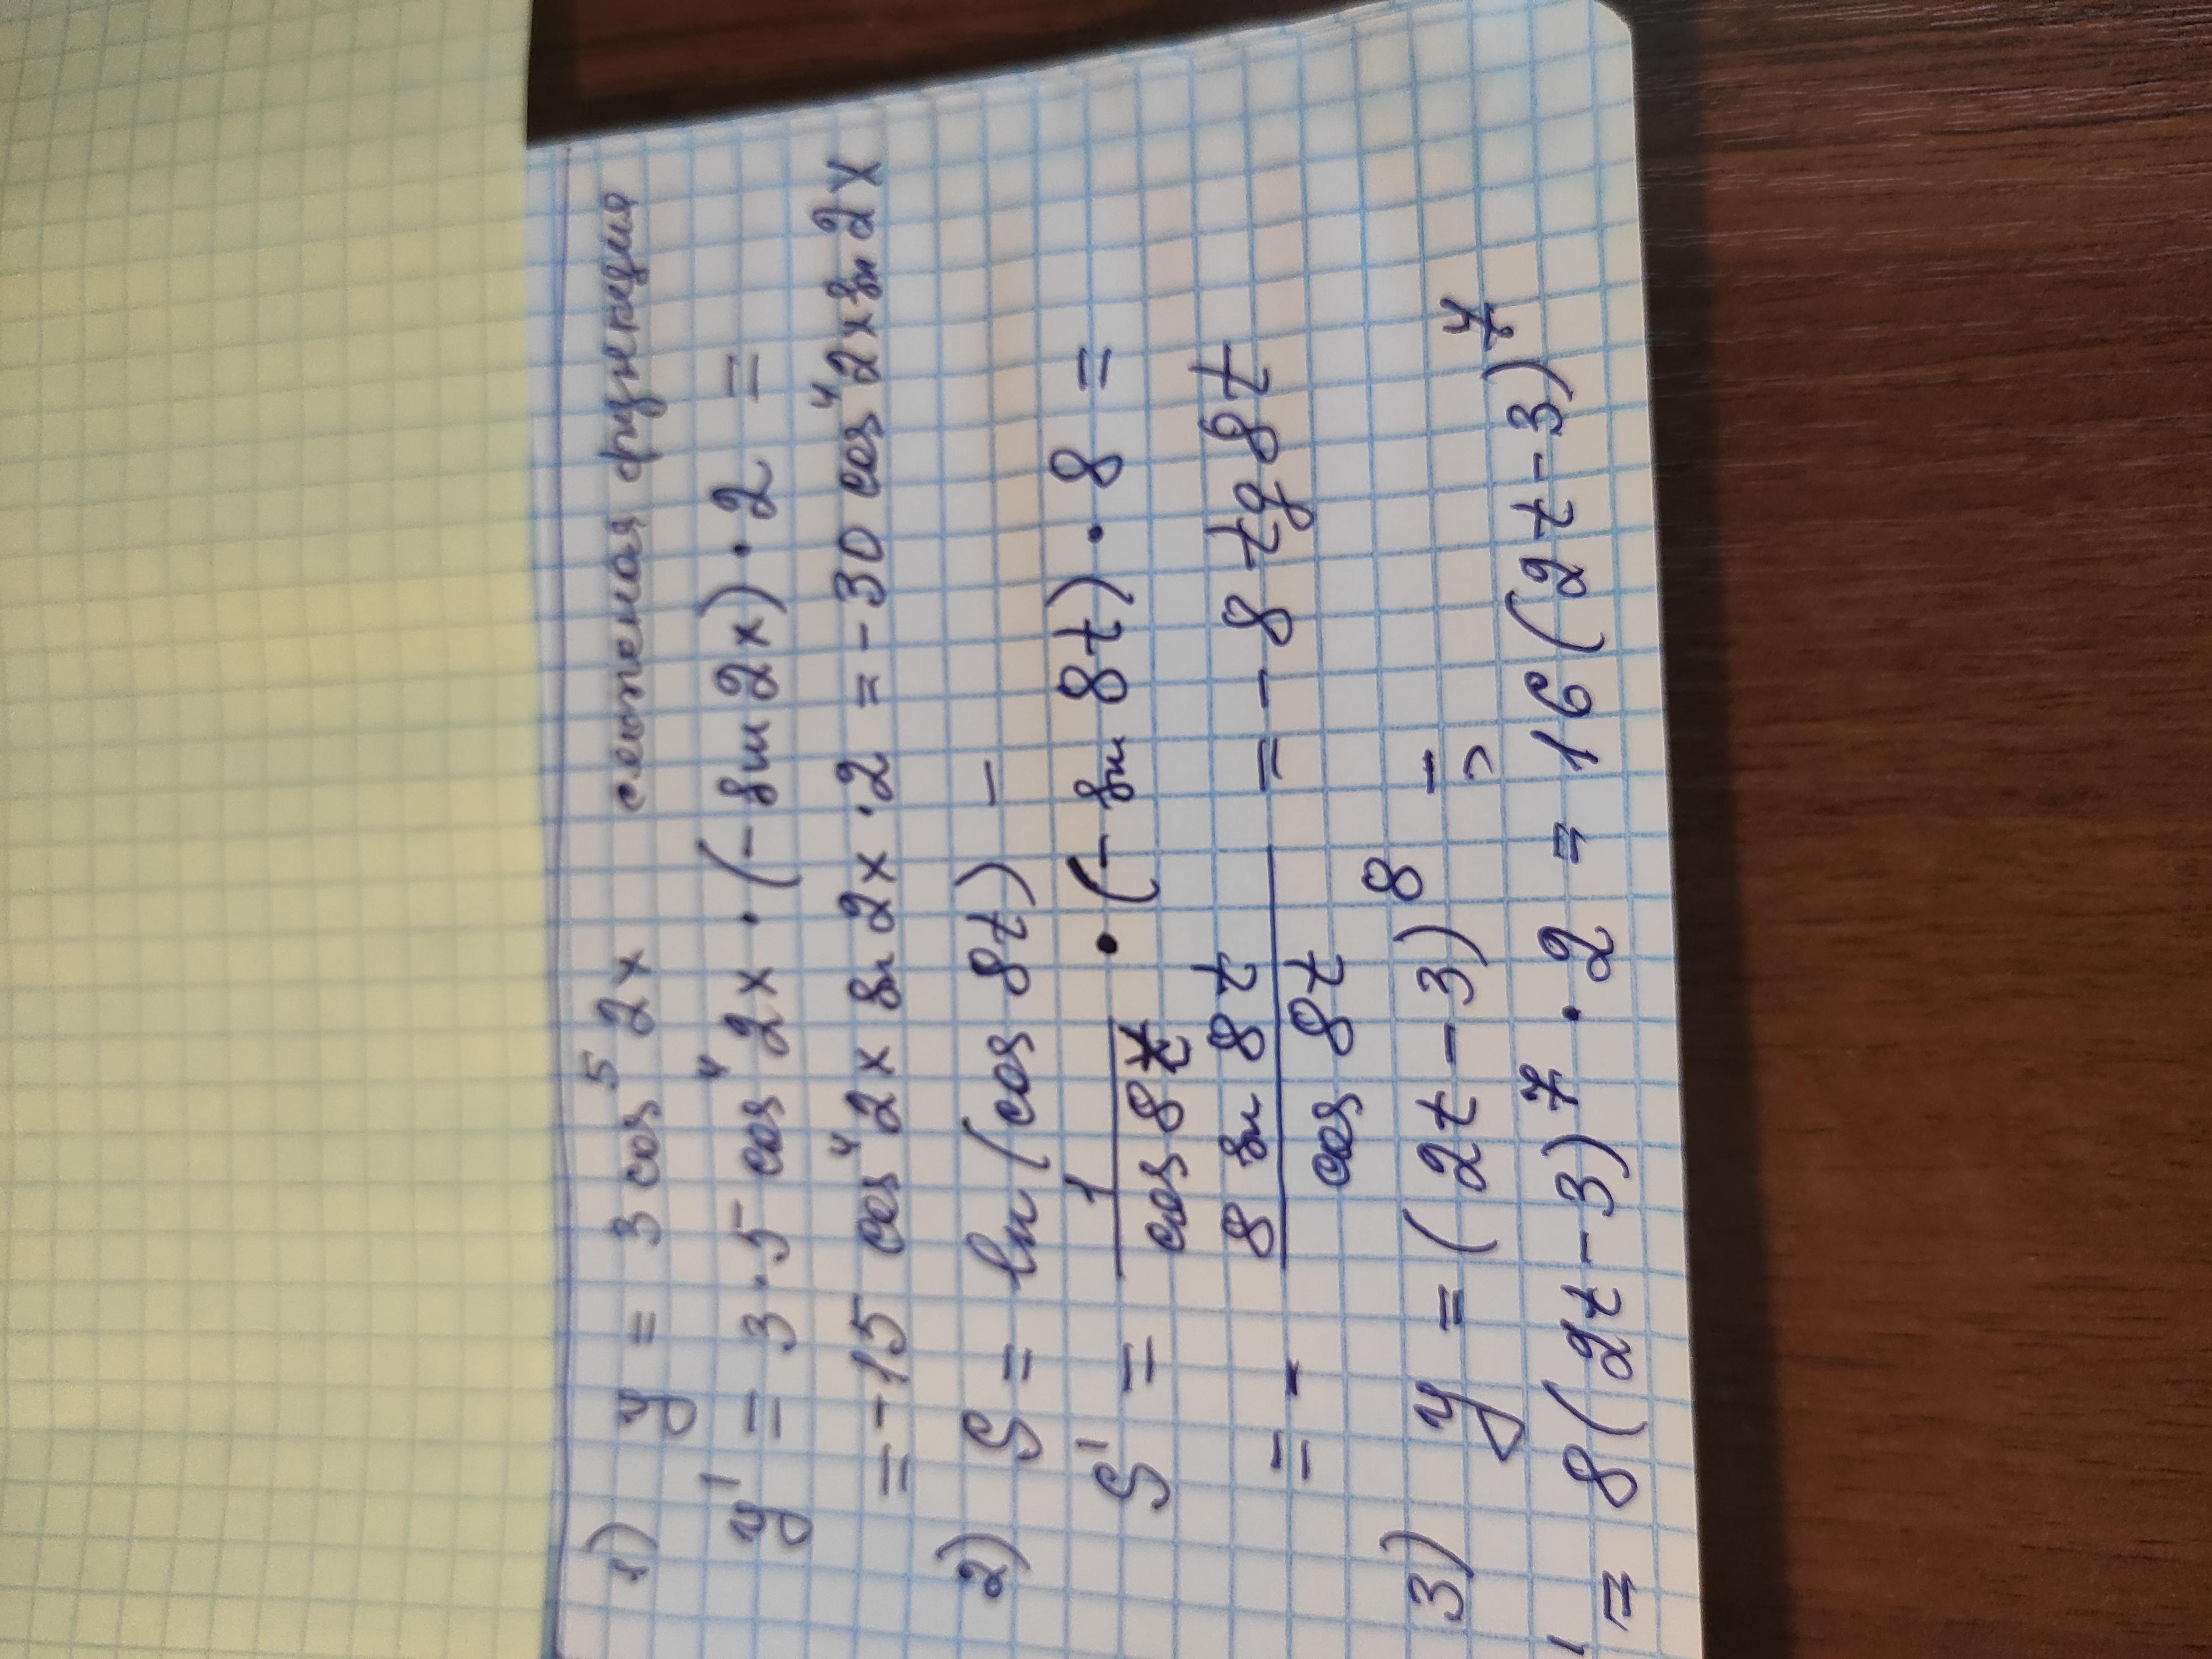 1) y = 3 cos⁵ 2x сложная функция
y' = 3·5 cos⁴ 2x · (- sin 2x) · 2 =
= -15 cos⁴ 2x sin 2x · 2 = -30 cos⁴ 2x sin 2x
2) S = ln (cos 8t) –
S' = 1/cos 8t · (- sin 8t) · 8 =
= - 8 sin 8t/cos 8t = - 8 tg 8t
3) y = (2t - 3)⁸ –
' = 8(2t - 3)⁷ · 2 = 16(2t - 3)⁷